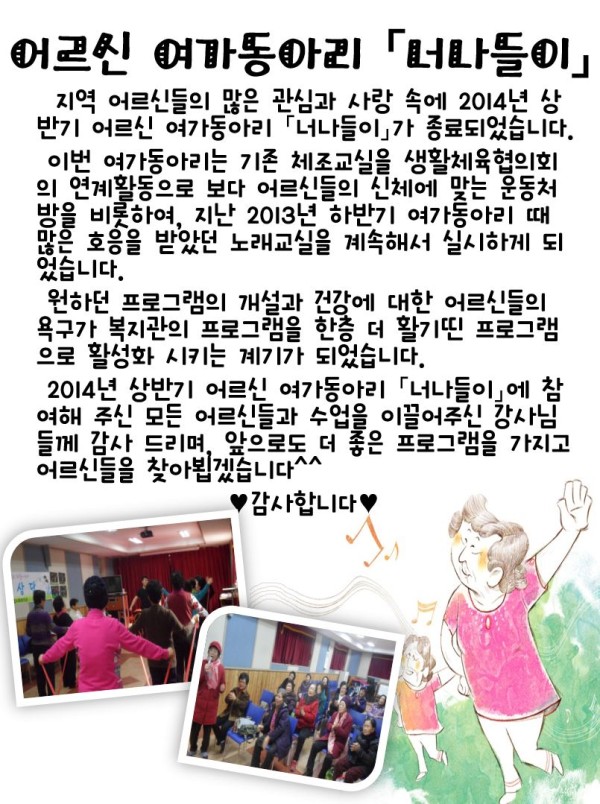 어르신 여가동아리 「너나들이」
지역 어르신들의 많은 관심과 사랑 속에 2014년 상
반기 어르신 여가동아리 「너나들이」가 종료되었습니다.
이번 여가동아리는 기존 체조교실을 생활체육협의회
의 연계활동으로 보다 어르신들의 신체에 맞는 운동처
방을 비롯하여, 지난 2013년 하반기 여가동아리 때
많은 호응을 받았던 노래교실을 계속해서 실시하게 되
었습니다.
원하던 프로그램의 개설과 건강에 대한 어르신들의
욕구가 복지관의 프로그램을 한층 더 활기띤 프로그램
으로 활성화 시키는 계기가 되었습니다.
2014년 상반기 어르신 여가동아리 「너나들이」에 참
여해 주신 모든 어르신들과 수업을 이끌어주신 강사님
들께 감사 드리며, 앞으로도 더 좋은 프로그램을 가지고
어르신들을 찾아뵙겠습니다^^
♥감사합니다♥